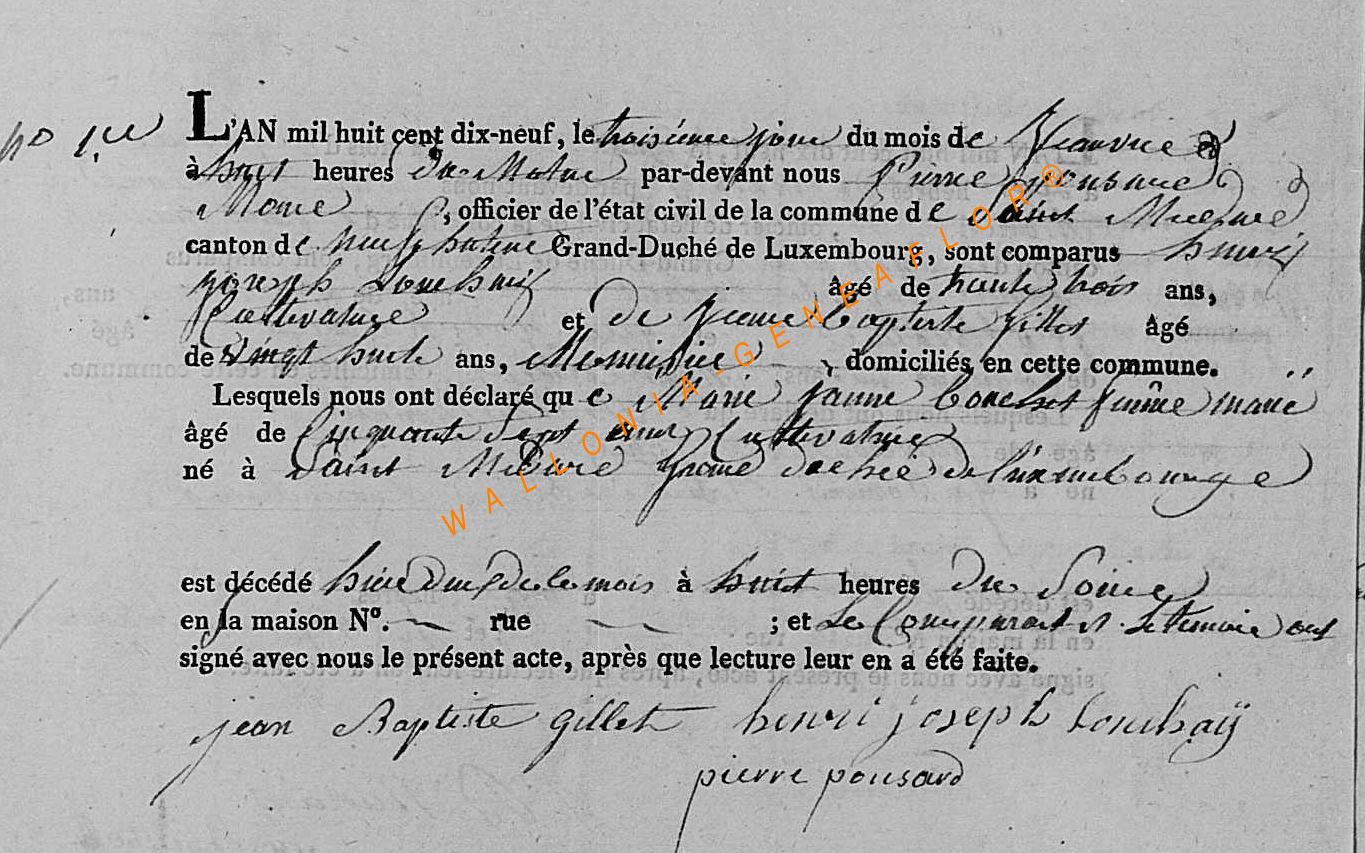 no 1er
L'AN mil huit cent dix-neuf, le troisieme jour du mois de Janvie
à huit heures du Matin par-devant nous Pierre pousard
Maire, officier de l'état civil de la commune de Saint Medard
canton de neufchateau Grand-Duché de Luxembourg, sont comparus henri
joseph Louchaij âgé de trente trois ans,
Cultivateur et de jean baptiste gillet âgé
de vingt huit ans, domiciliés en cette commune.
Lesquels nous ont déclaré que Marie jeanne femme
âgé de Cinquante Sept ans Cultivatrice
né à Saint Medard grand duché de luxembourge
est décédé hier deux de le mois à huit heures du Soire
en la maison N°. rue ; et Les Comparant et temoin ont
signé avec nous le présent acte, après que lecture leur en a été faite.
jean Baptiste gillet henri joseph Louchaÿ
pierre pousard
WALLONIA-GENEAFLOR©